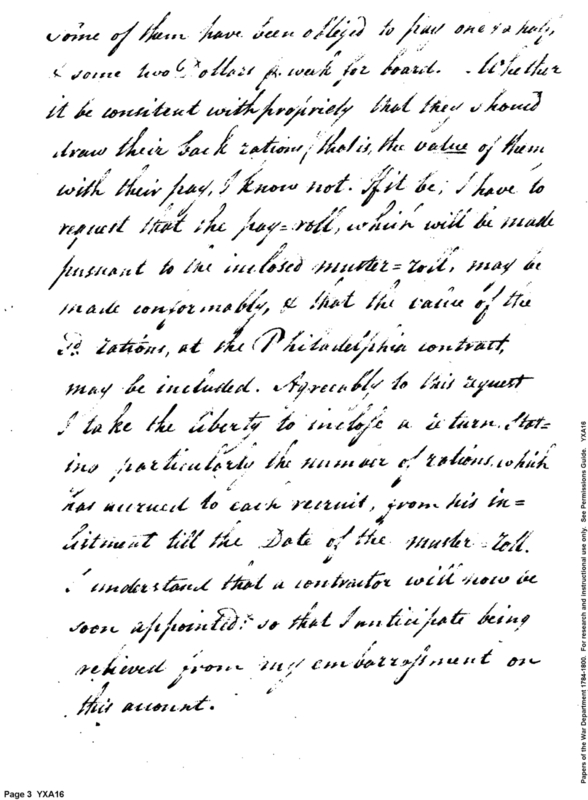 some of them have been obliged to pay one & a half,
& some two Dollars pr week for board. Whether
it be consitent with propriety that they should
draw their back rations, (that is, the value of them
with their pay, I know not. If it be, I have to
request that the pay=roll, which will be made
pursuant to the inclosed muster=roll, may be
made conformably, & that the value of the
sd. rations, at the Philadelphia contract,
may be included. Agreeably to this request
I take the liberty to inclose a return stat=
ing particularly the number of rations which
has accrued to each recruit, from his in=
listment till the Date of the muster=roll.
I understand that a contractor will now be
soon appointed: so that I anticipate being
relieved from my embarrassment on
this account.
Page 3 YXA16
Papers of the War Department 1784-1800. For research and instructional use only. See Permissions Guide. YXA16